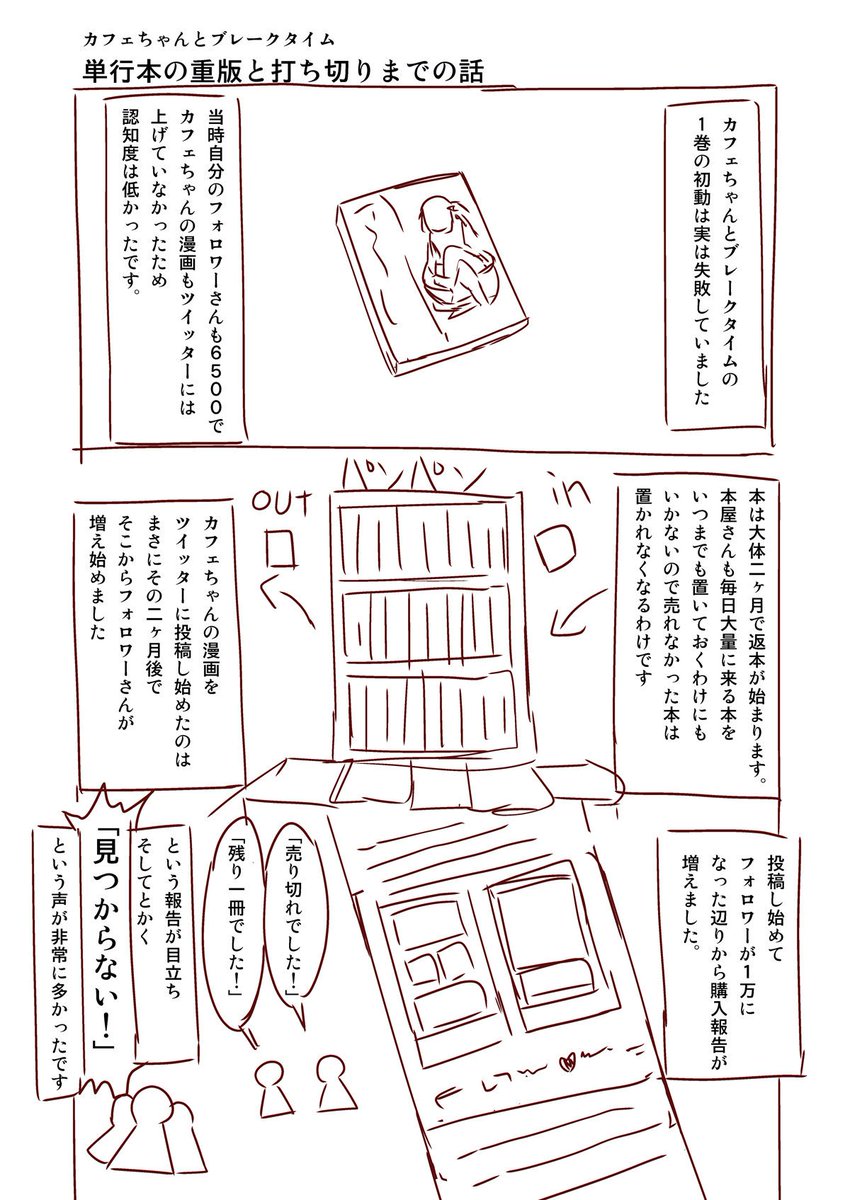 カフェちゃんとブレークタイム
単行本の重版と打ち切りまでの話
カフェちゃんとブレークタイムの
１巻の初動は実は失敗していました
当時自分のフォロワーさんも６５００で
カフェちゃんの漫画もツイッターには
上げていなかったため
認知度は低かったです。
本は大体二ヶ月で返本が始まります。
本屋さんも毎日大量に来る本を
いつまでも置いておくわけにも
いかないので売れなかった本は
置かれなくなるわけです
in
パンパン
out
カフェちゃんの漫画を
ツイッターに投稿し始めたのは
まさにその二ヶ月後で
そこからフォロワーさんが
増え始めました
投稿し始めて
フォロワーが１万に
なった辺りから購入報告が
増えました。
「売り切れでした！」
「残り一冊でした！」
という報告が目立ち
そしてとかく
「見つからない！」
という声が非常に多かったです